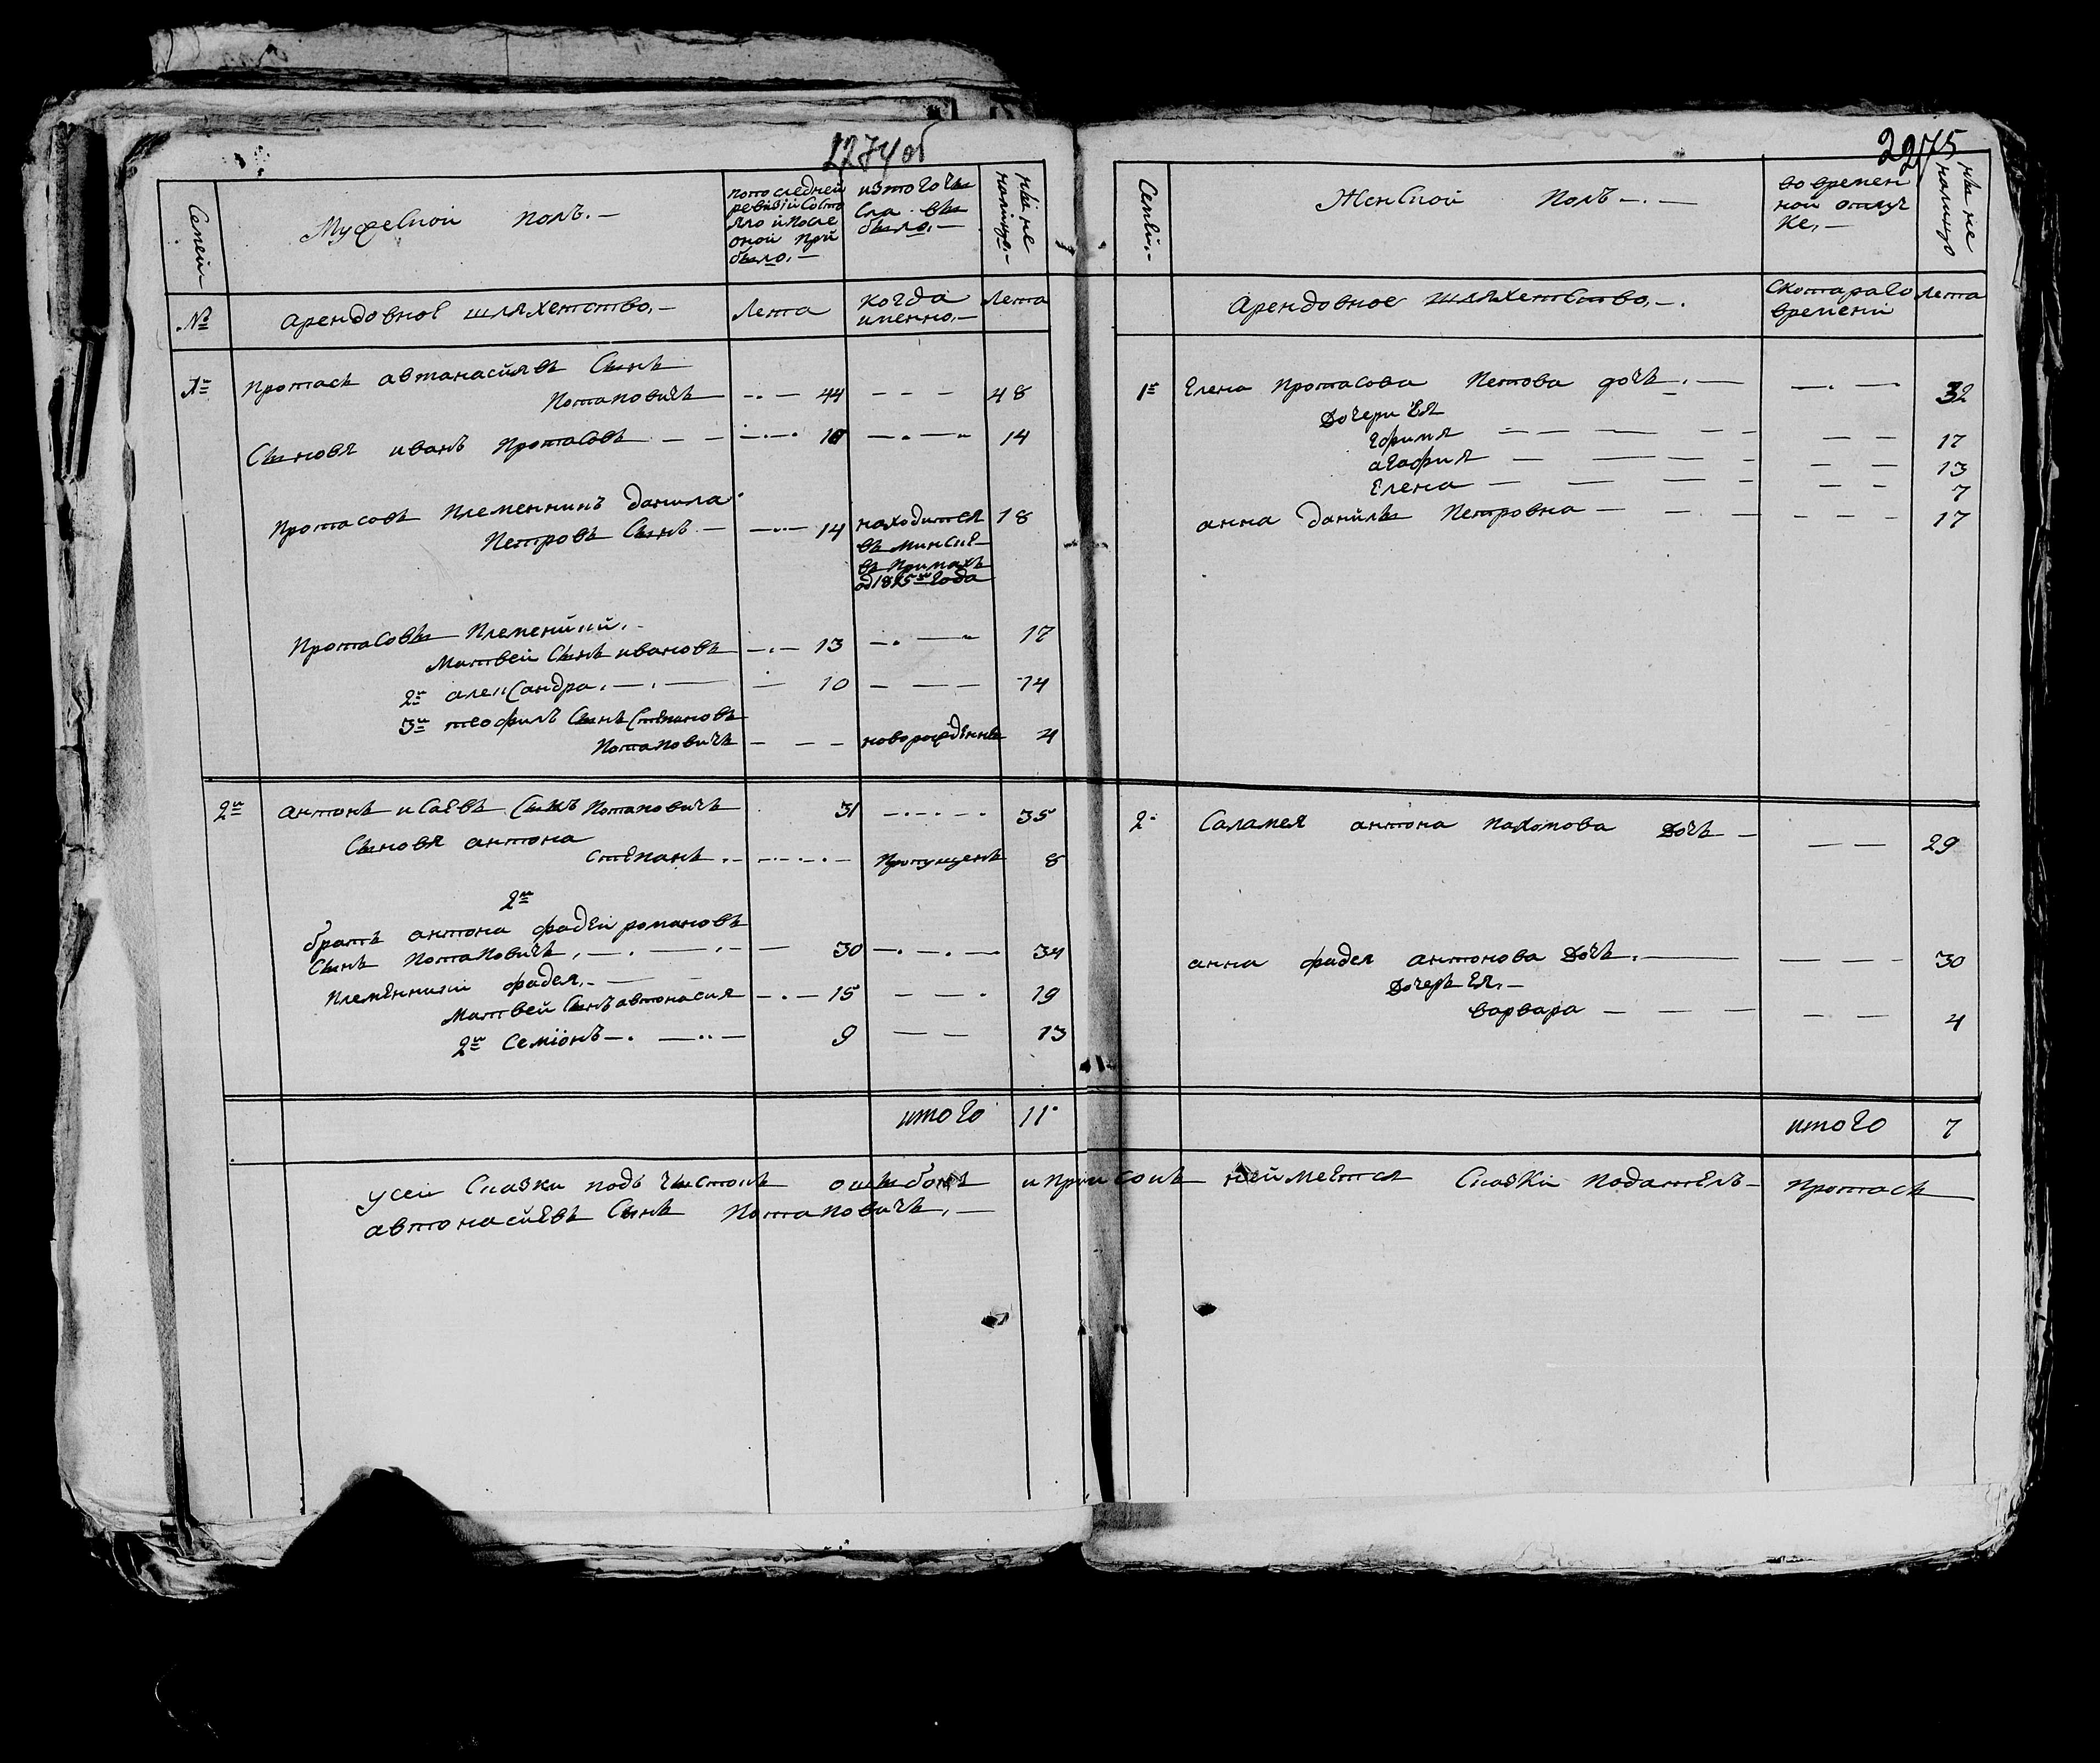 2274об
Семей
Мужеской полъ. —
попоследней
ревизіи Состо
яло ипосле
оной при
было. —
изтогочи
сла вы
было. —
ныне
налице. —
№
Арендовное шляхетство. —
Лета
когда
именно. —
Лета
1й
Протасъ автанасиявъ Сынъ
Потаповичь — 44 — — — 48
Сыновя иванъ Протасовъ — — 10 — — 14
Протасовъ Племенникъ данила
Петровъ Сынъ — 14 находится 18
въ минске
въ Примахъ
од 1815го года
Протасовы Племеники. —
Матвей Сынъ ивановъ — 13 — — 17
2й александра. — — 10 — — — 14
3й теофилъ Сынъ Степановъ
Потаповичь — — — новорожденны 4
2й антонъ исаевъ Сынъ Потаповичь 31 — — 35
Сыновя антона
степанъ. — — Пропущенъ 8
2й
братъ антона фадей романовъ
Сынъ Потаповичь. — — 30 — — 34
племенники фадея. — —
Матвей Сынъ автонасия — 15 — — 19
2й Семіонъ — — 9 — — 13
итого 11
2275
Семьи. —
Женской Полъ — —
во времен
ной отлуч
ке. —
ныне
налицо
Арендовное шляхетство. —
Скотараго
времени
Лета
1й Елена Протасова Петова дочь. — — — 32
Дочери Ея
Ефимя — — — — — — 17
агафия — — — — — — 13
Елена — — — — — — 7
анна данилы Петровна — — — — — 17
2. Саламея антона пахомова Дочь — — — 29
анна фадея антонова Дочь. — — — — 30
Дочерь Ея. —
варвара — — — — — — 4
итого 7
усей Сказки подъ чыстокъ ошыбокъ иприписокъ неймется Сказки податель — Протасъ
автонасиевъ Сынъ Потаповичь. —